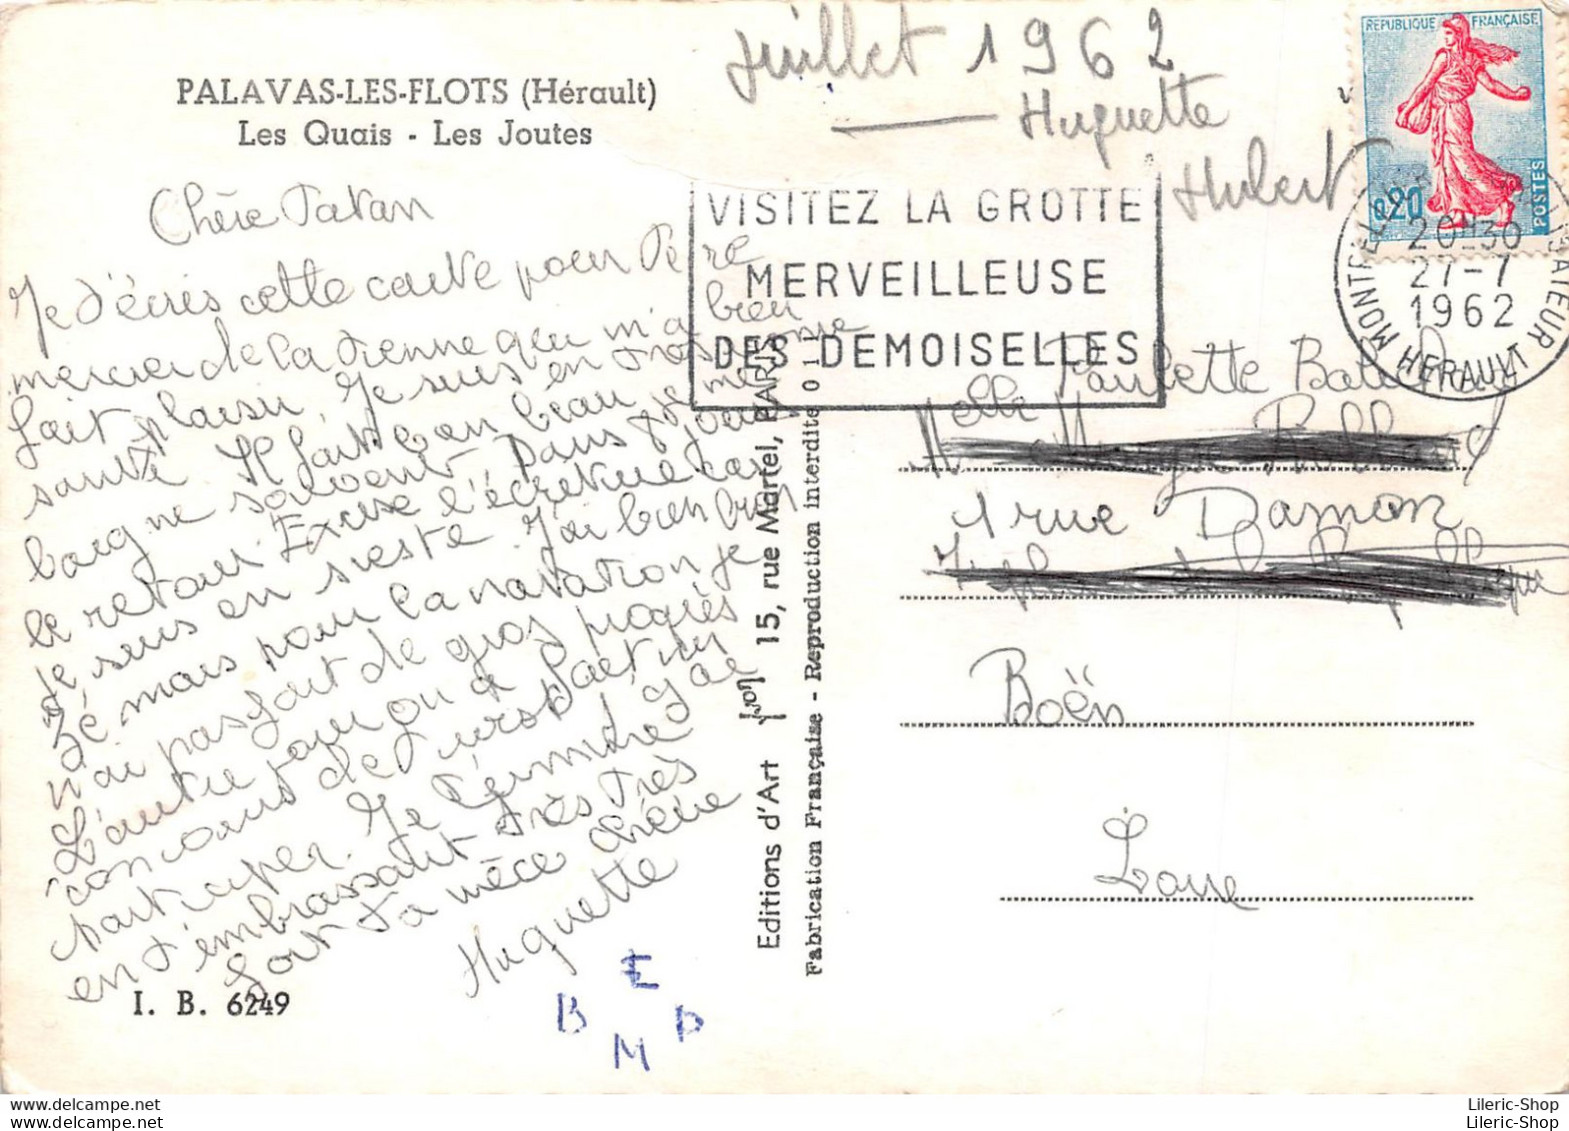 PALAVAS-LES-FLOTS (Hérault)
Les Quais - Les Joutes
Chère Tatan
Je t'écris cette carte pour te re
mercier de la tienne qui m'a bien
fait plaisir. Je suis en très bonne
santé. Il fait bon beau je me
baigne souvent. Dans 8 jours
le retour. Excuse l'écriture car
je suis en sieste. J'ai bien bron
zé mais pour la natation je
n'ai pas fait de gros progrès
L'autre jour on a fait un
concours de j'ai
participer. Je termine
en t'embrassant très très
fort ta nièce chérie
Huguette
I. B. 6249
E
B P
M
Editions d'Art yvon 15, rue Martel, PARIS
Fabrication Française - Reproduction interdite
Juillet 1962
Huguette
Hubert
VISITEZ LA GROTTE
MERVEILLEUSE
DES DEMOISELLES
REPUBLIQUE FRANÇAISE
0,20
POSTES
20H30
27-7
1962
HERAULT
Melle Paulette
1 rue Damon
Boën
Loire
Lileric-Shop
Lileric-Shop
Lileric-Shop
Lileric-Shop